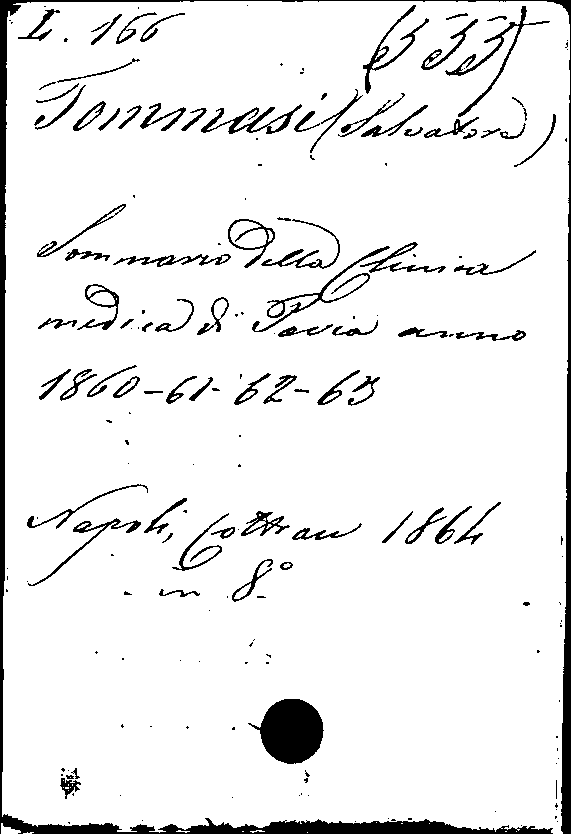 L. 166 (333)
Tommasi (Salvatore)
Sommario della Clinica
medica di Pavia anno
1860-61-62-63
Napoli, Cottrau 1864
in 8°